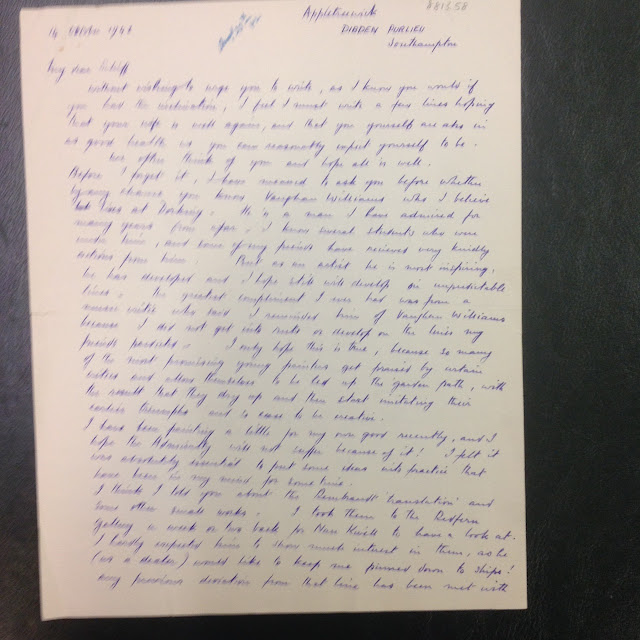 8813.58
Appletreewick
14 October 1941
DIBDEN PURLIEU
Southampton
My dear Schiff
Without wishing to urge you to write, as I know you would if
you had the inclination, I feel I must write a few lines hoping
that your wife is well again, and that you yourself are also in
as good health as you can reasonably expect yourself to be.
We often think of you and hope all is well.
Before I forget it, I have meant to ask you before whether
by any chance you know Vaughan Williams who I believe
lives at Dorking. He is a man I have admired for
many years from afar. I know several students who were
under him, and some of my friends have received very kindly
actions from him. But as an artist he is most inspiring,
he has developed and I hope still will develop on unpredictable
lines. The greatest compliment I ever had was from a
music critic who said I reminded him of Vaughan Williams
because I did not get into ruts or develop on the lines my
friends predicted. I only hope this is true, because so many
of the most promising young painters get praised by certain
critics and allow themselves to be led up the garden path, with
the result that they dry up and then start imitating their
earlier triumphs and so cease to be creative.
I have been painting a little for my own good recently, and I
hope the Admiralty will not suffer because of it! I felt it
was absolutely essential to put some ideas into practice that
have been in my mind for some time.
I think I told you about the Rembrandt 'translation' and
some other small works. I took them to the Redfern
Gallery a week or two back for Nan Kivell to have a look at.
I hardly expected him to show much interest in them, as he
(as a dealer) would like to keep me pinned down to ships!
Any previous deviation from that line has been met with